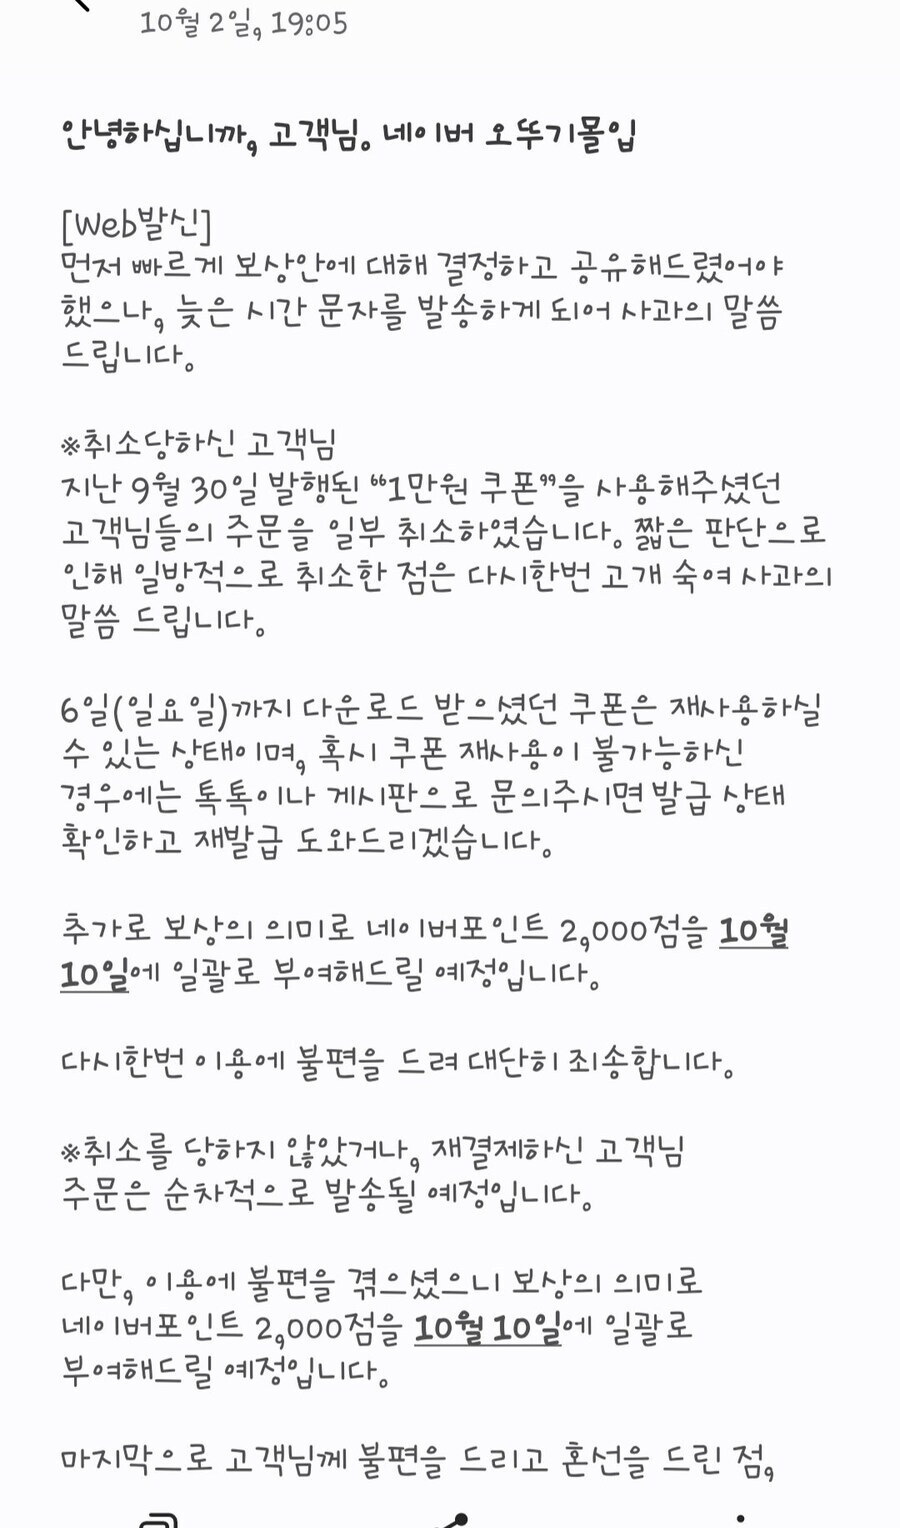 10월 2일, 19:05
안녕하십니까, 고객님. 네이버 오뚜기몰입
[Web발신]
먼저 빠르게 보상안에 대해 결정하고 공유해드렸어야
했으나, 늦은 시간 문자를 발송하게 되어 사과의 말씀
드립니다.
※취소당하신 고객님
지난 9월 30일 발행된 “1만원 쿠폰”을 사용해주셨던
고객님들의 주문을 일부 취소하였습니다. 짧은 판단으로
인해 일방적으로 취소한 점은 다시한번 고개 숙여 사과의
말씀 드립니다.
6일(일요일)까지 다운로드 받으셨던 쿠폰은 재사용하실
수 있는 상태이며, 혹시 쿠폰 재사용이 불가능하신
경우에는 톡톡이나 게시판으로 문의주시면 발급 상태
확인하고 재발급 도와드리겠습니다.
추가로 보상의 의미로 네이버포인트 2,000점을 10월
10일에 일괄로 부여해드릴 예정입니다.
다시한번 이용에 불편을 드려 대단히 죄송합니다.
※취소를 당하지 않았거나, 재결제하신 고객님
주문은 순차적으로 발송될 예정입니다.
다만, 이용에 불편을 겪으셨으니 보상의 의미로
네이버포인트 2,000점을 10월 10일에 일괄로
부여해드릴 예정입니다.
마지막으로 고객님께 불편을 드리고 혼선을 드린 점,